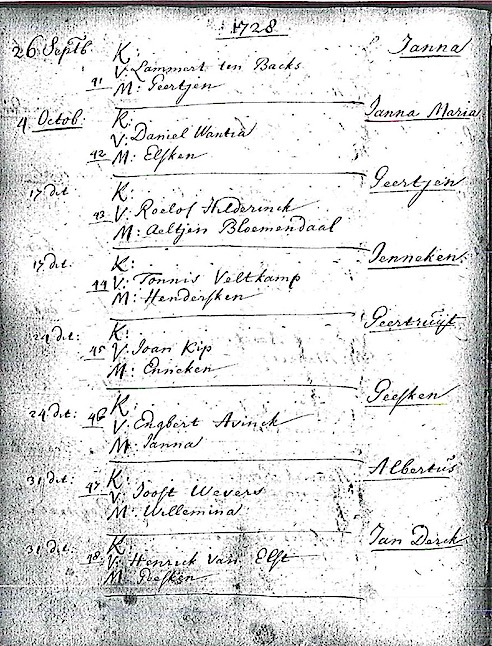 1728
26 Septb K: Janna
41 V: Lammert ten Backs
M: Geertjen
4 Octob: K: Janna Maria
42 V: Daniel Wantia
M: Elsken
17 dit K: Geertjen
43 V: Roelof Hilderinck
M: Aeltjen Bloemendaal
17 dit: K: Jenneken
44 V: Tonnis Veltkamp
M: Hendersken
24 dit: K: Geertruijt
45 V: Joan Kip
M: Enneken
24 dit: K: Geesken
46 V: Engbert Avinck
M: Janna
31 dit: K: Albertus
47 V: Joost Wevers
M: Willemina
31 dit: K: Jan Derck
48 V: Henrick van Elst
M: Geesken